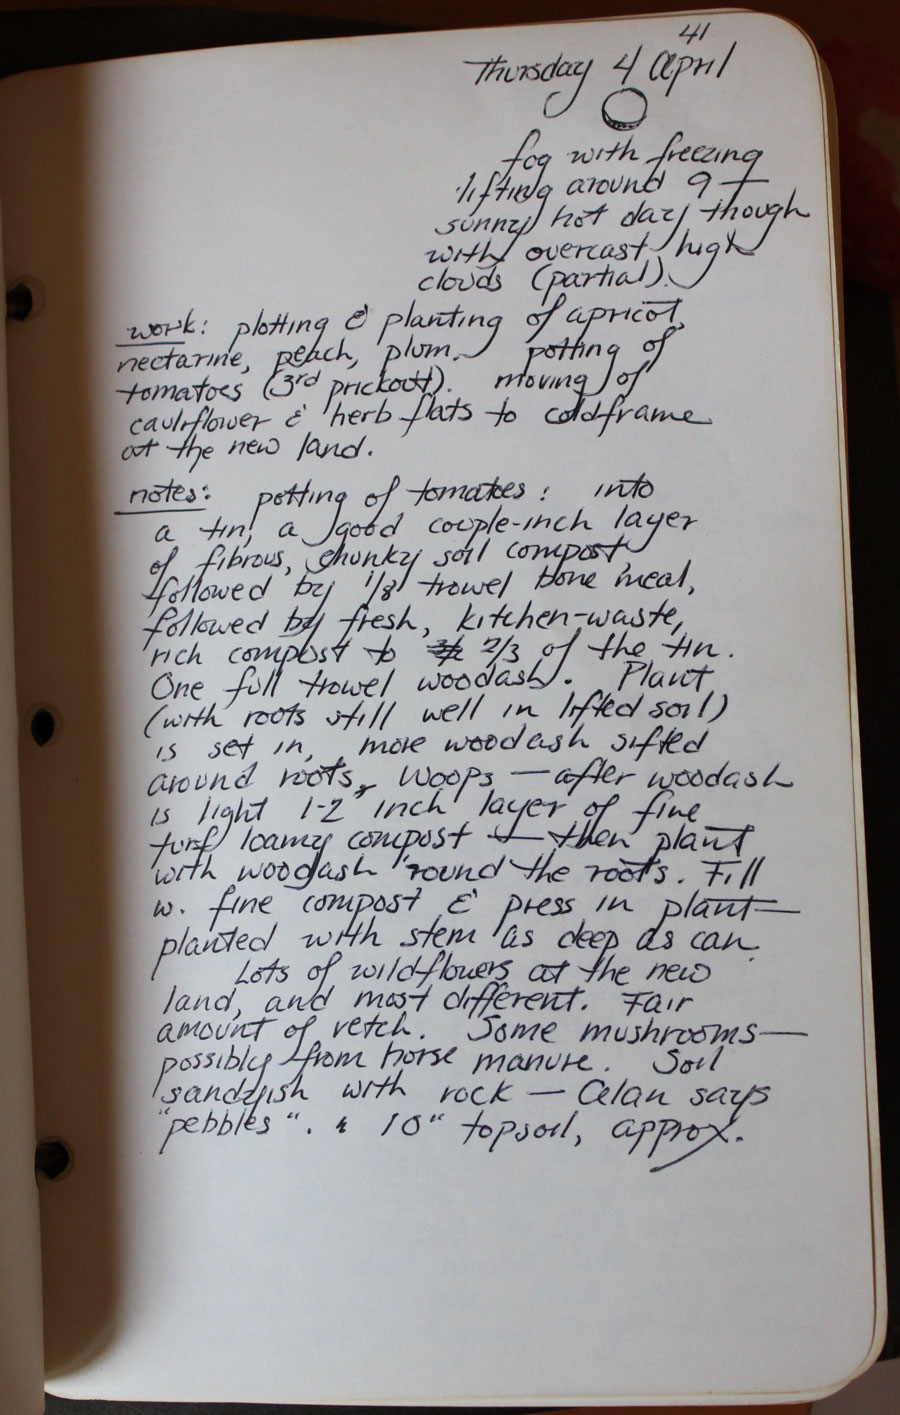 41
Thursday 4 April
fog with freezing
lifting around 9 —
sunny hot day though
with overcast high
clouds (partial).
work: plotting & planting of apricot,
nectarine, peach, plum. potting of
tomatoes (3rd prickout). moving of
cauliflower & herb flats to coldframe
at the new land.
notes: potting of tomatoes: into
a tin, a good couple-inch layer
of fibrous, chunky soil compost
followed by 1/8 trowel bone meal,
followed by fresh, kitchen-waste,
rich compost to 2/3 of the tin.
One full trowel woodash. Plant
(with roots still well in lifted soil)
is set in, more woodash sifted
around roots, Woops — after woodash
is light 1-2" inch layer of fine
turf loamy compost — then plant
with woodash 'round the roots. Fill
w. fine compost & press in plant —
planted with stem as deep as can.
Lots of wildflowers at the new
land, and most different. Fair
amount of vetch. Some mushrooms —
possibly from horse manure. Soil
sandyish with rock — Alan says
"pebbles". 10" topsoil, approx.